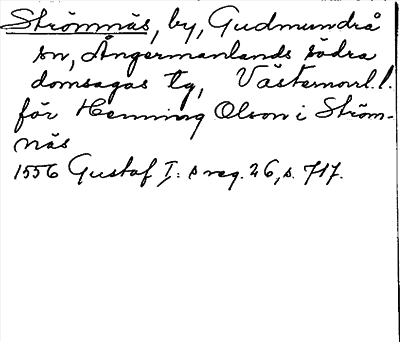 Strömnäs, by, Gudmundrå
sn, Ångermanlands södra
domsagas tg, Västernorrl.l.
för Henning Olson i Ström-
näs
1556 Gustaf I:s reg. 26, s. 717.